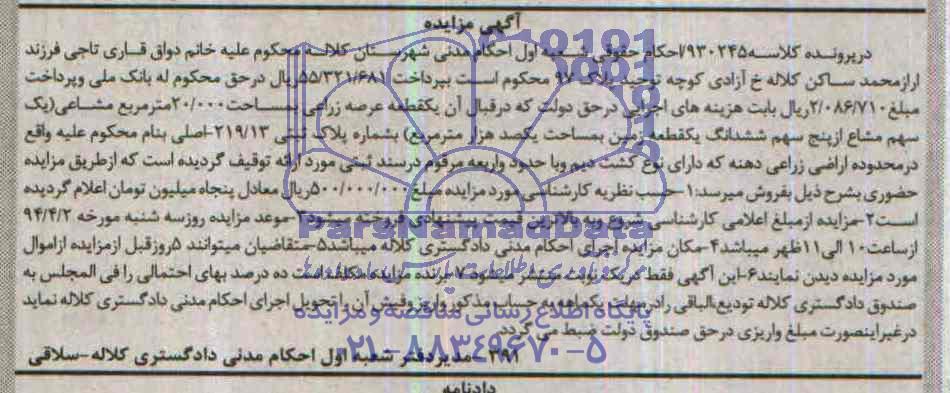 آگهی مزایده
درپرونده کلاسه۹۳۰۲۴۵/احکام حقوقی شعبه اول احکام مدنی شهرستان کلاله محکوم علیه خانم دواق قاری تاجی فرزند
ارازمحمد ساکن کلاله خ آزادی کوچه توحید پلاک ۹۷ محکوم است بپرداخت ۵۵/۳۲۱/۶۸۱ریال درحق محکوم له بانک ملی وپرداخت
مبلغ۲/۰۸۶/۷۱۰ریال بابت هزینه های اجرایی درحق دولت که درقبال آن یکقطعه عرصه زراعی بمساحت۲۰/۰۰۰مترمربع مشاعی(یک
سهم مشاع ازپنج سهم ششدانگ یکقطعه زمین بمساحت یکصد هزار مترمربع) بشماره پلاک ثبتی ۲۱۹/۱۳-اصلی بنام محکوم علیه واقع
درمحدوده اراضی زراعی دهنه که دارای نوع کشت دیم وبا حدود واربعه مرقوم درسند ثبتی مورد ارائه توقیف گردیده است که ازطریق مزایده
حضوری بشرح ذیل بفروش میرسد:۱-حسب نظریه کارشناسی مورد مزایده مبلغ ۵۰۰/۰۰۰/۰۰۰ریال معادل پنجاه میلیون تومان اعلام گردیده
است۲-مزایده ازمبلغ اعلامی کارشناسی شروع وبه بالاترین قیمت پیشنهادی فروخته میشود۳-موعد مزایده روزسه شنبه مورخه ۹۴/۴/۲
ازساعت۱۰ الی۱۱ظهر میباشد۴-مکان مزایده اجرای احکام مدنی دادگستری کلاله میباشد۵-متقاضیان میتوانند ۵روزقبل ازمزایده ازاموال
مورد مزایده دیدن نمایند۶-این آگهی فقط یک نوبت منتشر میشود۷-برنده مزایده مکلف است ده درصد بهای احتمالی را فی المجلس به
صندوق دادگستری کلاله تودیع الباقی رادرمهلت یکماهه به حساب مذکور واریز وفیش آن راتحویل اجرای احکام مدنی دادگستری کلاله نماید
درغیراینصورت مبلغ واریزی درحق صندوق دولت ضبط می گردد
۳۹۱-مدیردفتر شعبه اول احکام مدنی دادگستری کلاله-سلاقی
دادنامه
ParsNamadData
پایگاه اطلاع رسانی مناقصه و مزایده
۰۲۱-۸۸۳۴۹۶۷۰-۵